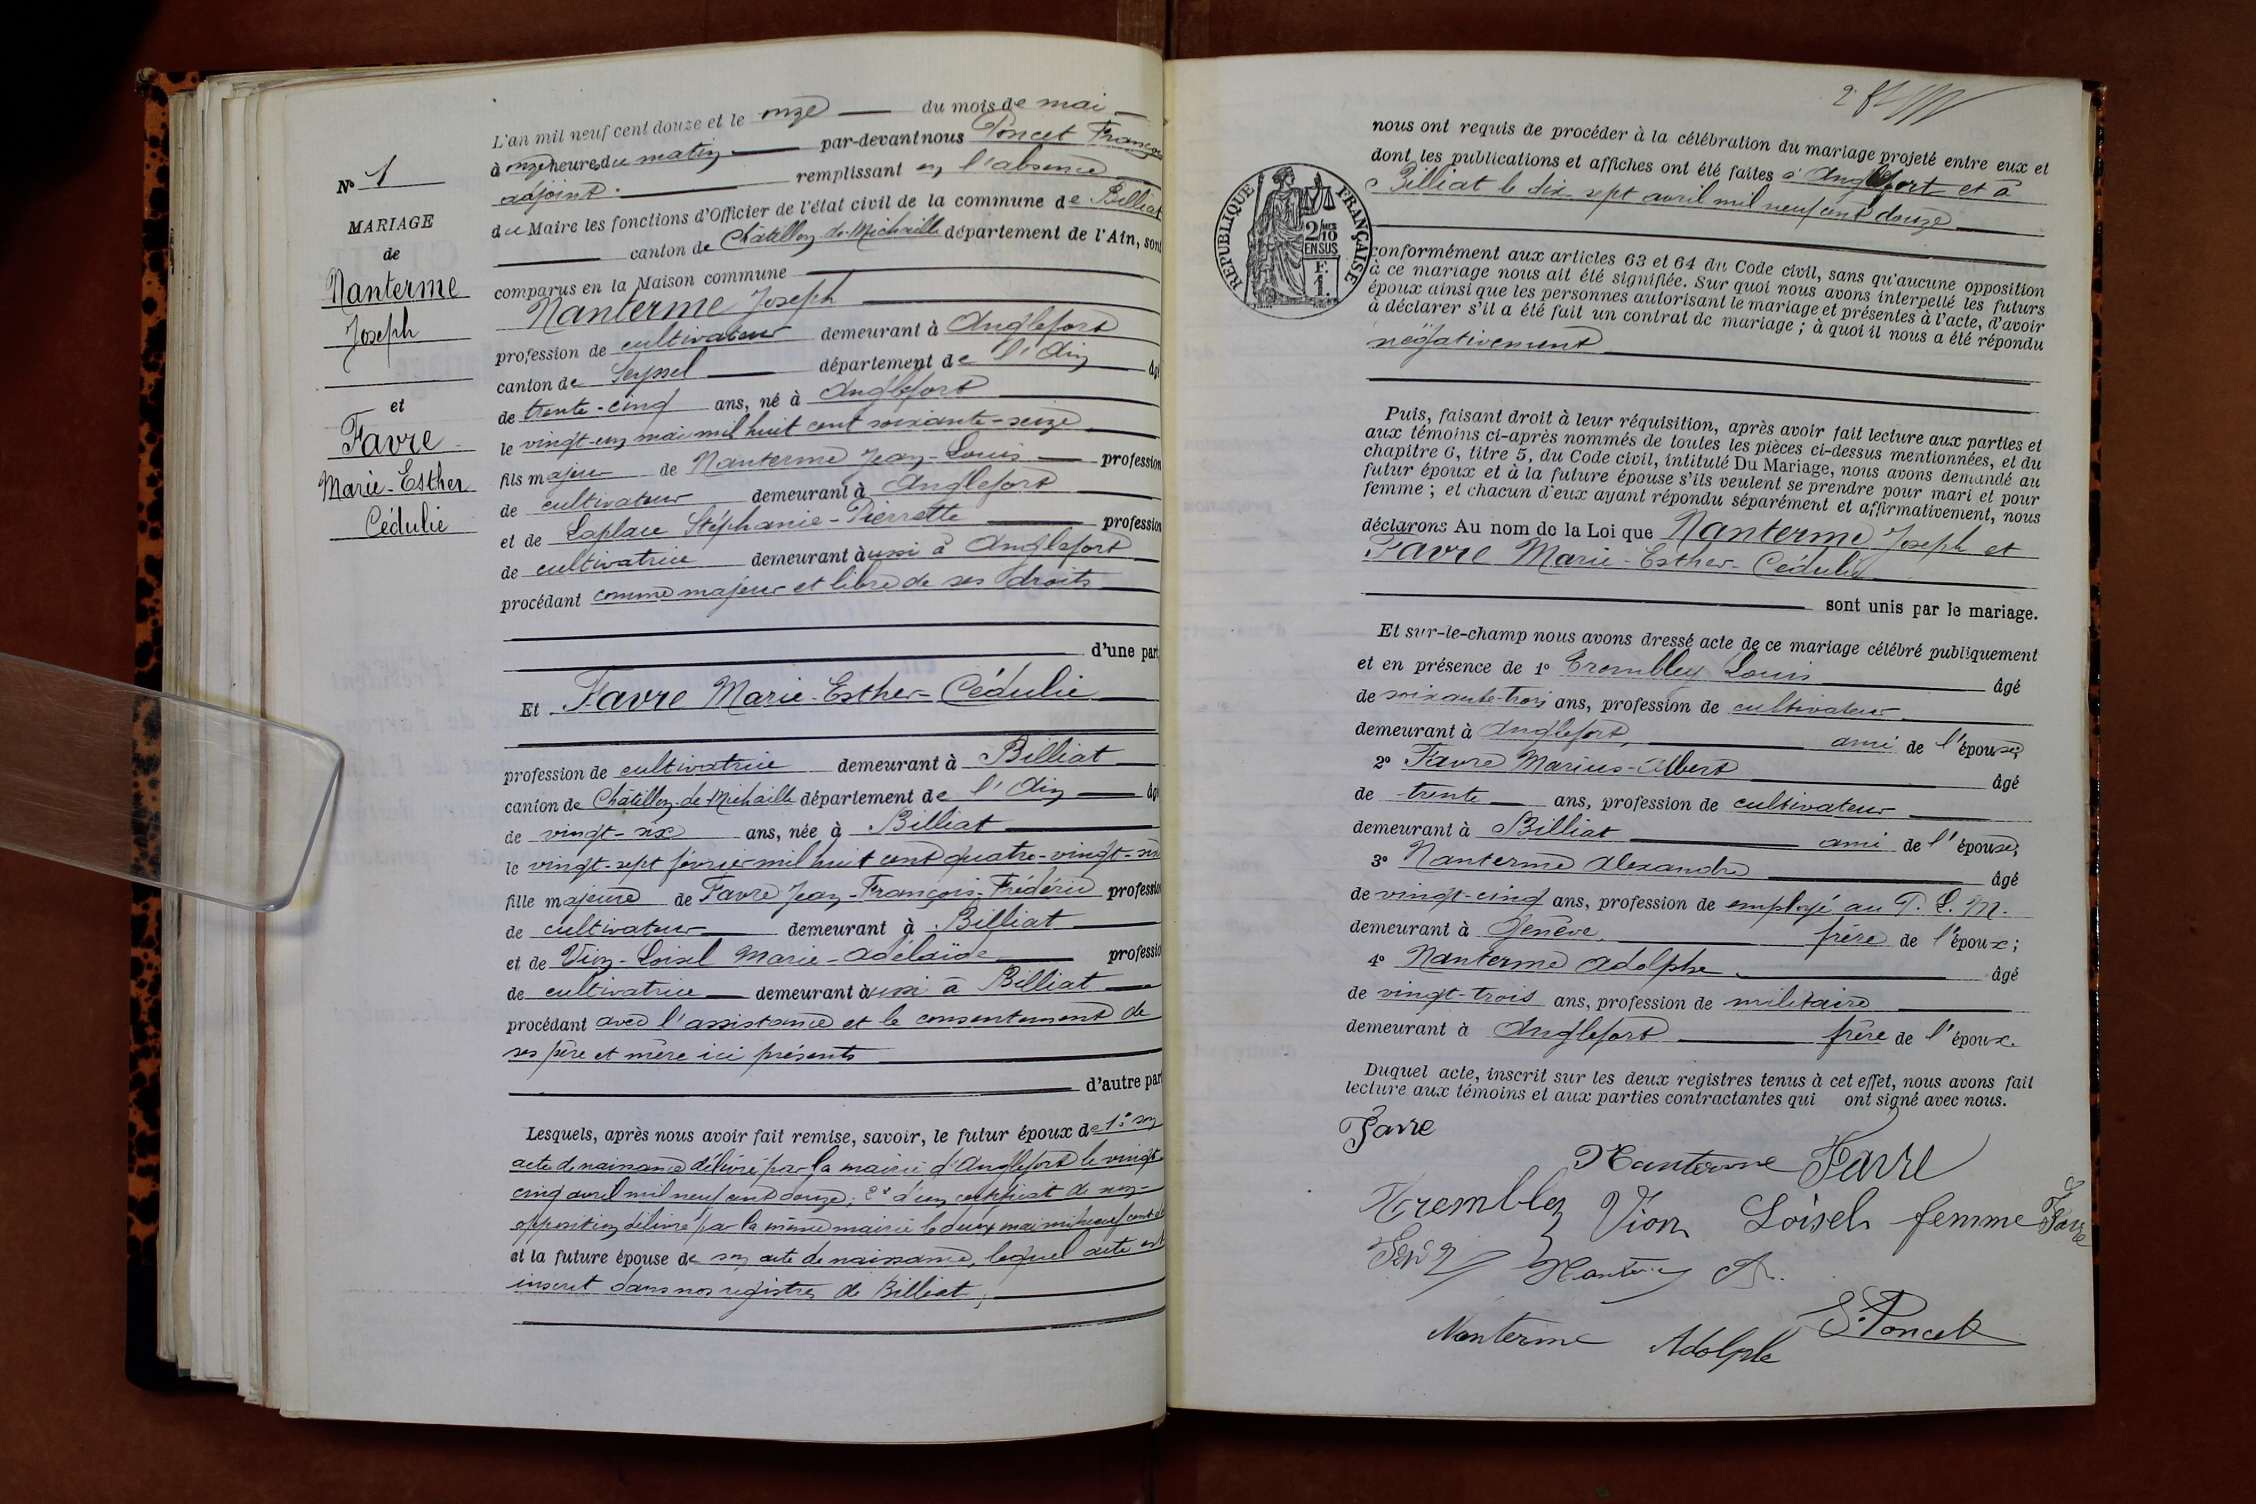 N° 1
MARIAGE
de
Nanterme
Joseph
et
Favre
Marie-Esther
Cédulie
L'an mil neuf cent douze et le onze du mois de mai
à onze heures du matin par-devant nous Poncet François
adjoint remplissant en l'absence
du Maire les fonctions d'Officier de l'état civil de la commune de Billiat
canton de Châtillon-de-Michaille département de l'Ain, sont
comparus en la Maison commune
Nanterme Joseph
profession de cultivateur demeurant à Anglefort
canton de Seyssel département de l'Ain âgé
de trente-cinq ans, né à Anglefort
le vingt-un mai mil huit cent soixante-seize
fils majeur de Nanterme Jean-Louis profession
de cultivateur demeurant à Anglefort
et de Laplace Stéphanie-Pierrette profession
de cultivatrice demeurant aussi à Anglefort
procédant comme majeur et libre de ses droits
d'une part,
Et Favre Marie-Esther-Cédulie
profession de cultivatrice demeurant à Billiat
canton de Châtillon-de-Michaille département de l'Ain âgé
de vingt-six ans, née à Billiat
le vingt-sept février mil huit cent quatre-vingt-six
fille majeure de Favre Jean-François-Frédéric profession
de cultivateur demeurant à Billiat
et de Vion-Loisel Marie-Adélaïde profession
de cultivatrice demeurant aussi à Billiat
procédant avec l'assistance et le consentement de
ses père et mère ici présents
d'autre part
Lesquels, après nous avoir fait remise, savoir, le futur époux de 1° son
acte de naissance délivré par la mairie d'Anglefort le vingt
cinq avril mil neuf cent douze; 2° d'un certificat de non-
opposition délivré par la même mairie le deux mai mil neuf cent
et la future épouse de son acte de naissance, lequel acte est
inscrit dans nos registres de Billiat;
nous ont requis de procéder à la célébration du mariage projeté entre eux et
dont les publications et affiches ont été faites à Anglefort et à
Billiat le dix-sept avril mil neuf cent douze
RÉPUBLIQUE FRANÇAISE
2/10
EN SUS
conformément aux articles 63 et 64 du Code civil, sans qu'aucune opposition
à ce mariage nous ait été signifiée. Sur quoi nous avons interpellé les futurs
époux ainsi que les personnes autorisant le mariage et présentes à l'acte, d'avoir
à déclarer s'il a été fait un contrat de mariage; à quoi il nous a été répondu
négativement
Puis, faisant droit à leur réquisition, après avoir fait lecture aux parties et
aux témoins ci-après nommés de toutes les pièces ci-dessus mentionnées, et du
chapitre 6, titre 5, du Code civil, intitulé Du Mariage, nous avons demandé au
futur époux et à la future épouse s'ils veulent se prendre pour mari et pour
femme; et chacun d'eux ayant répondu séparément et affirmativement, nous
déclarons Au nom de la Loi que Nanterme Joseph et
Favre Marie-Esther-Cédulie
sont unis par le mariage.
Et sur-le-champ nous avons dressé acte de ce mariage célébré publiquement
et en présence de 1° Trembley Louis âgé
de soixante-trois ans, profession de cultivateur
demeurant à Anglefort, ami de l'épouse;
2° Favre Marius-Albert âgé
de trente ans, profession de cultivateur
demeurant à Billiat ami de l'épouse;
3° Nanterme Alexandre âgé
de vingt-cinq ans, profession de employé au P. L. M.
demeurant à Genève, frère de l'époux;
4° Nanterme Adolphe âgé
de vingt-trois ans, profession de militaire
demeurant à Anglefort frère de l'époux.
Duquel acte, inscrit sur les deux registres tenus à cet effet, nous avons fait
lecture aux témoins et aux parties contractantes qui ont signé avec nous.
Favre
Nanterme Favre
Trembley Vion Loisel femme Favre
Nanterme A.
Nanterme Adolphe Poncet